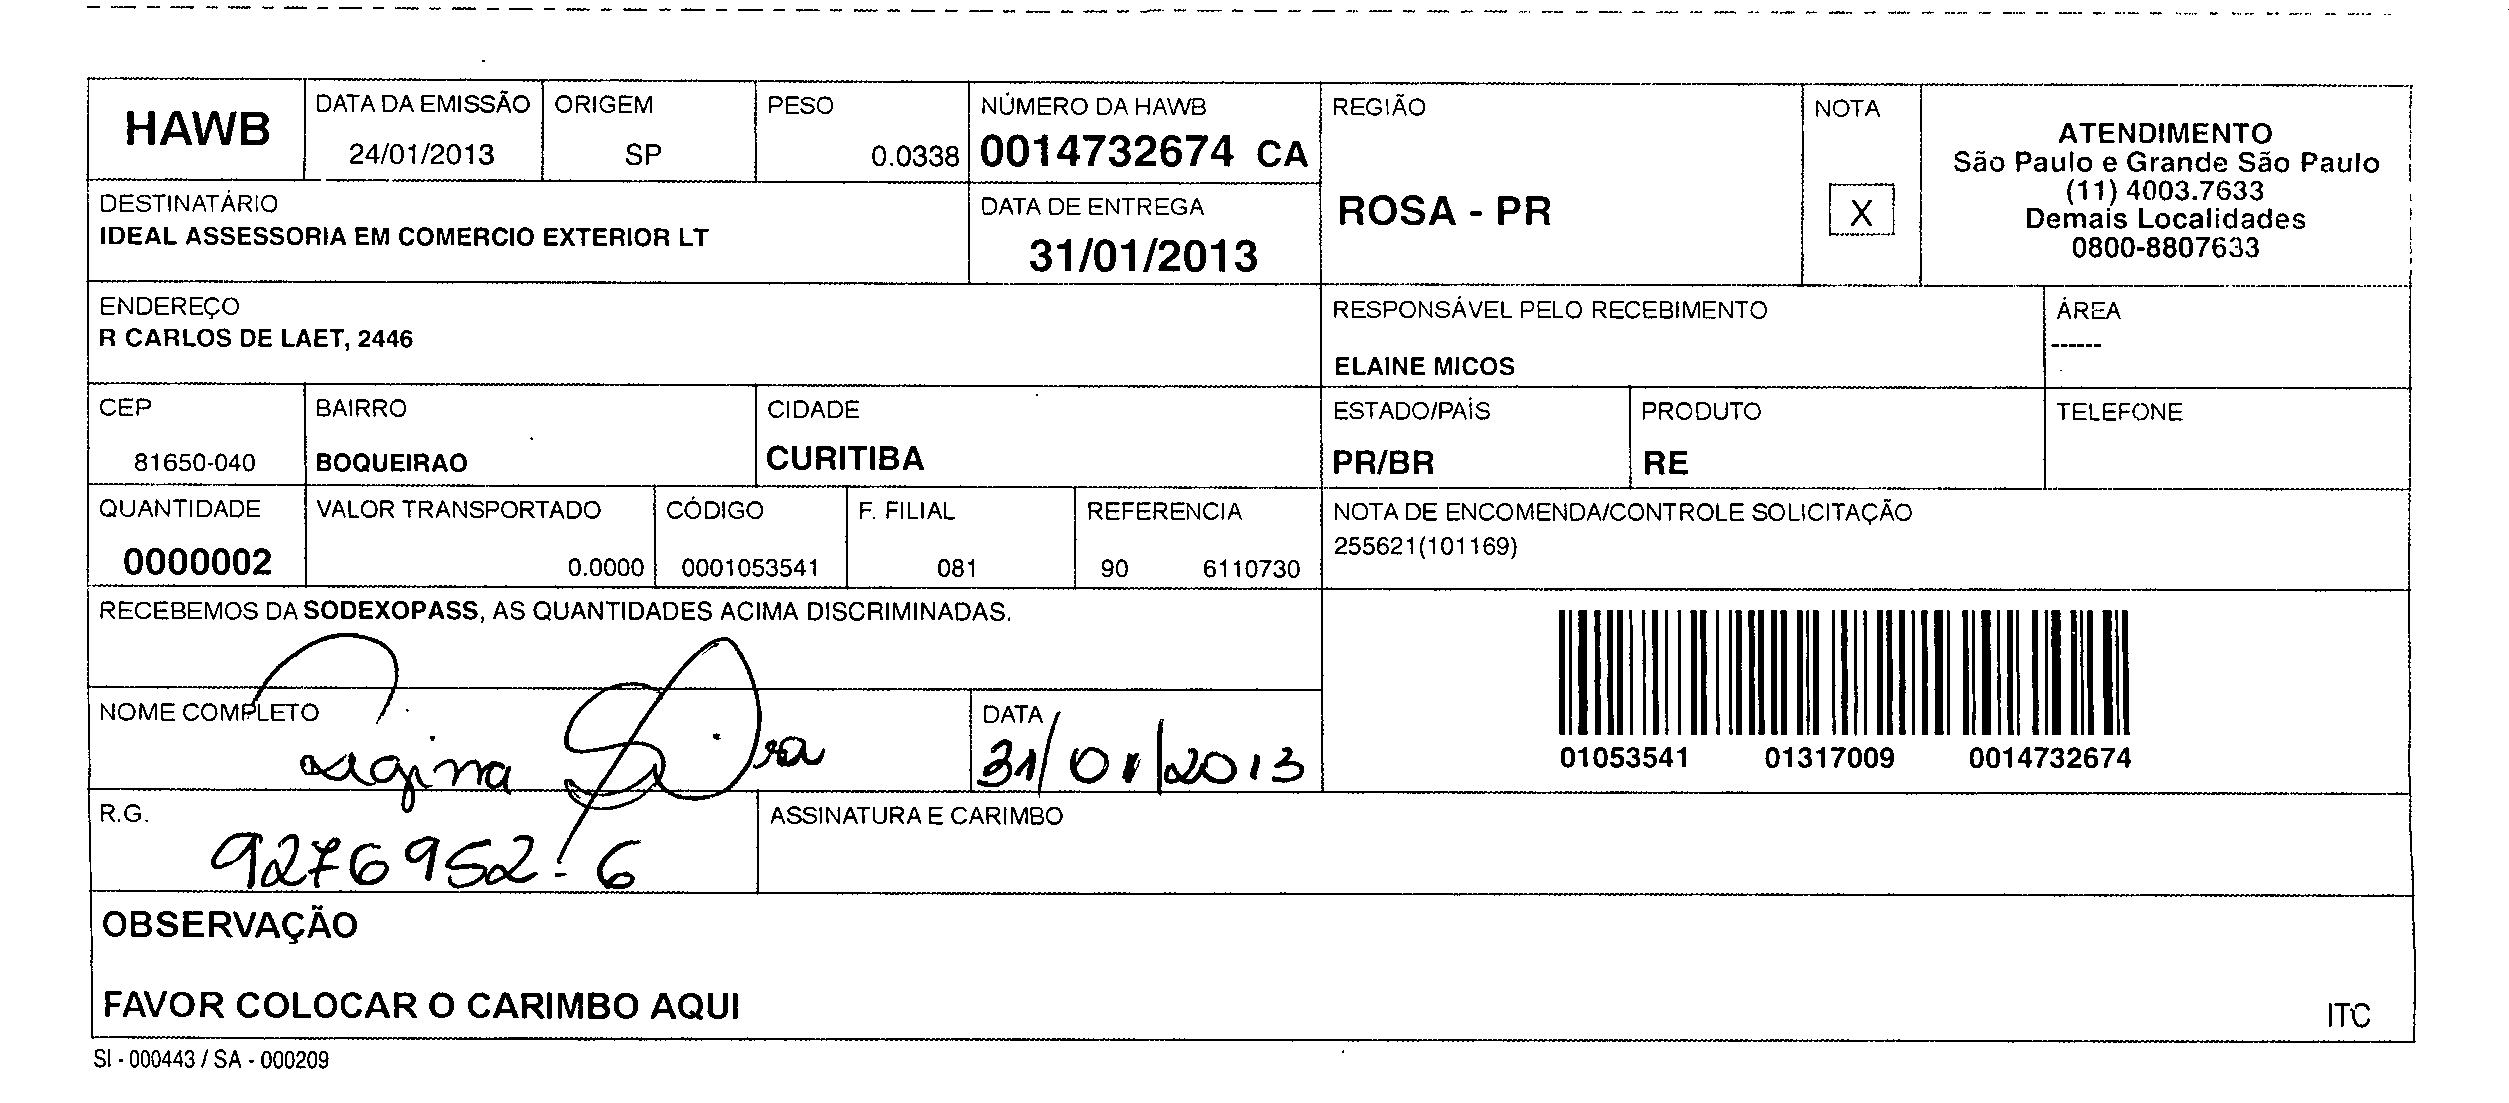 HAWB
DATA DA EMISSÃO
24/01/2013
ORIGEM
SP
PESO
0.0338
NÚMERO DA HAWB
0014732674 CA
REGIÃO
ROSA - PR
NOTA
X
ATENDIMENTO
São Paulo e Grande São Paulo
(11) 4003.7633
Demais Localidades
0800-8807633
DESTINATÁRIO
IDEAL ASSESSORIA EM COMERCIO EXTERIOR LT
DATA DE ENTREGA
31/01/2013
ENDEREÇO
R CARLOS DE LAET, 2446
RESPONSÁVEL PELO RECEBIMENTO
ELAINE MICOS
ÁREA
------
CEP
81650-040
BAIRRO
BOQUEIRAO
CIDADE
CURITIBA
ESTADO/PAÍS
PR/BR
PRODUTO
RE
TELEFONE
QUANTIDADE
0000002
VALOR TRANSPORTADO
0.0000
CÓDIGO
0001053541
F. FILIAL
081
REFERENCIA
90 6110730
NOTA DE ENCOMENDA/CONTROLE SOLICITAÇÃO
255621(101169)
RECEBEMOS DA SODEXOPASS, AS QUANTIDADES ACIMA DISCRIMINADAS.
01053541 01317009 0014732674
NOME COMPLETO
Regina
DATA
31/01/2013
R.G.
9276952-6
ASSINATURA E CARIMBO
OBSERVAÇÃO
FAVOR COLOCAR O CARIMBO AQUI
ITC
SI - 000443 / SA - 000209